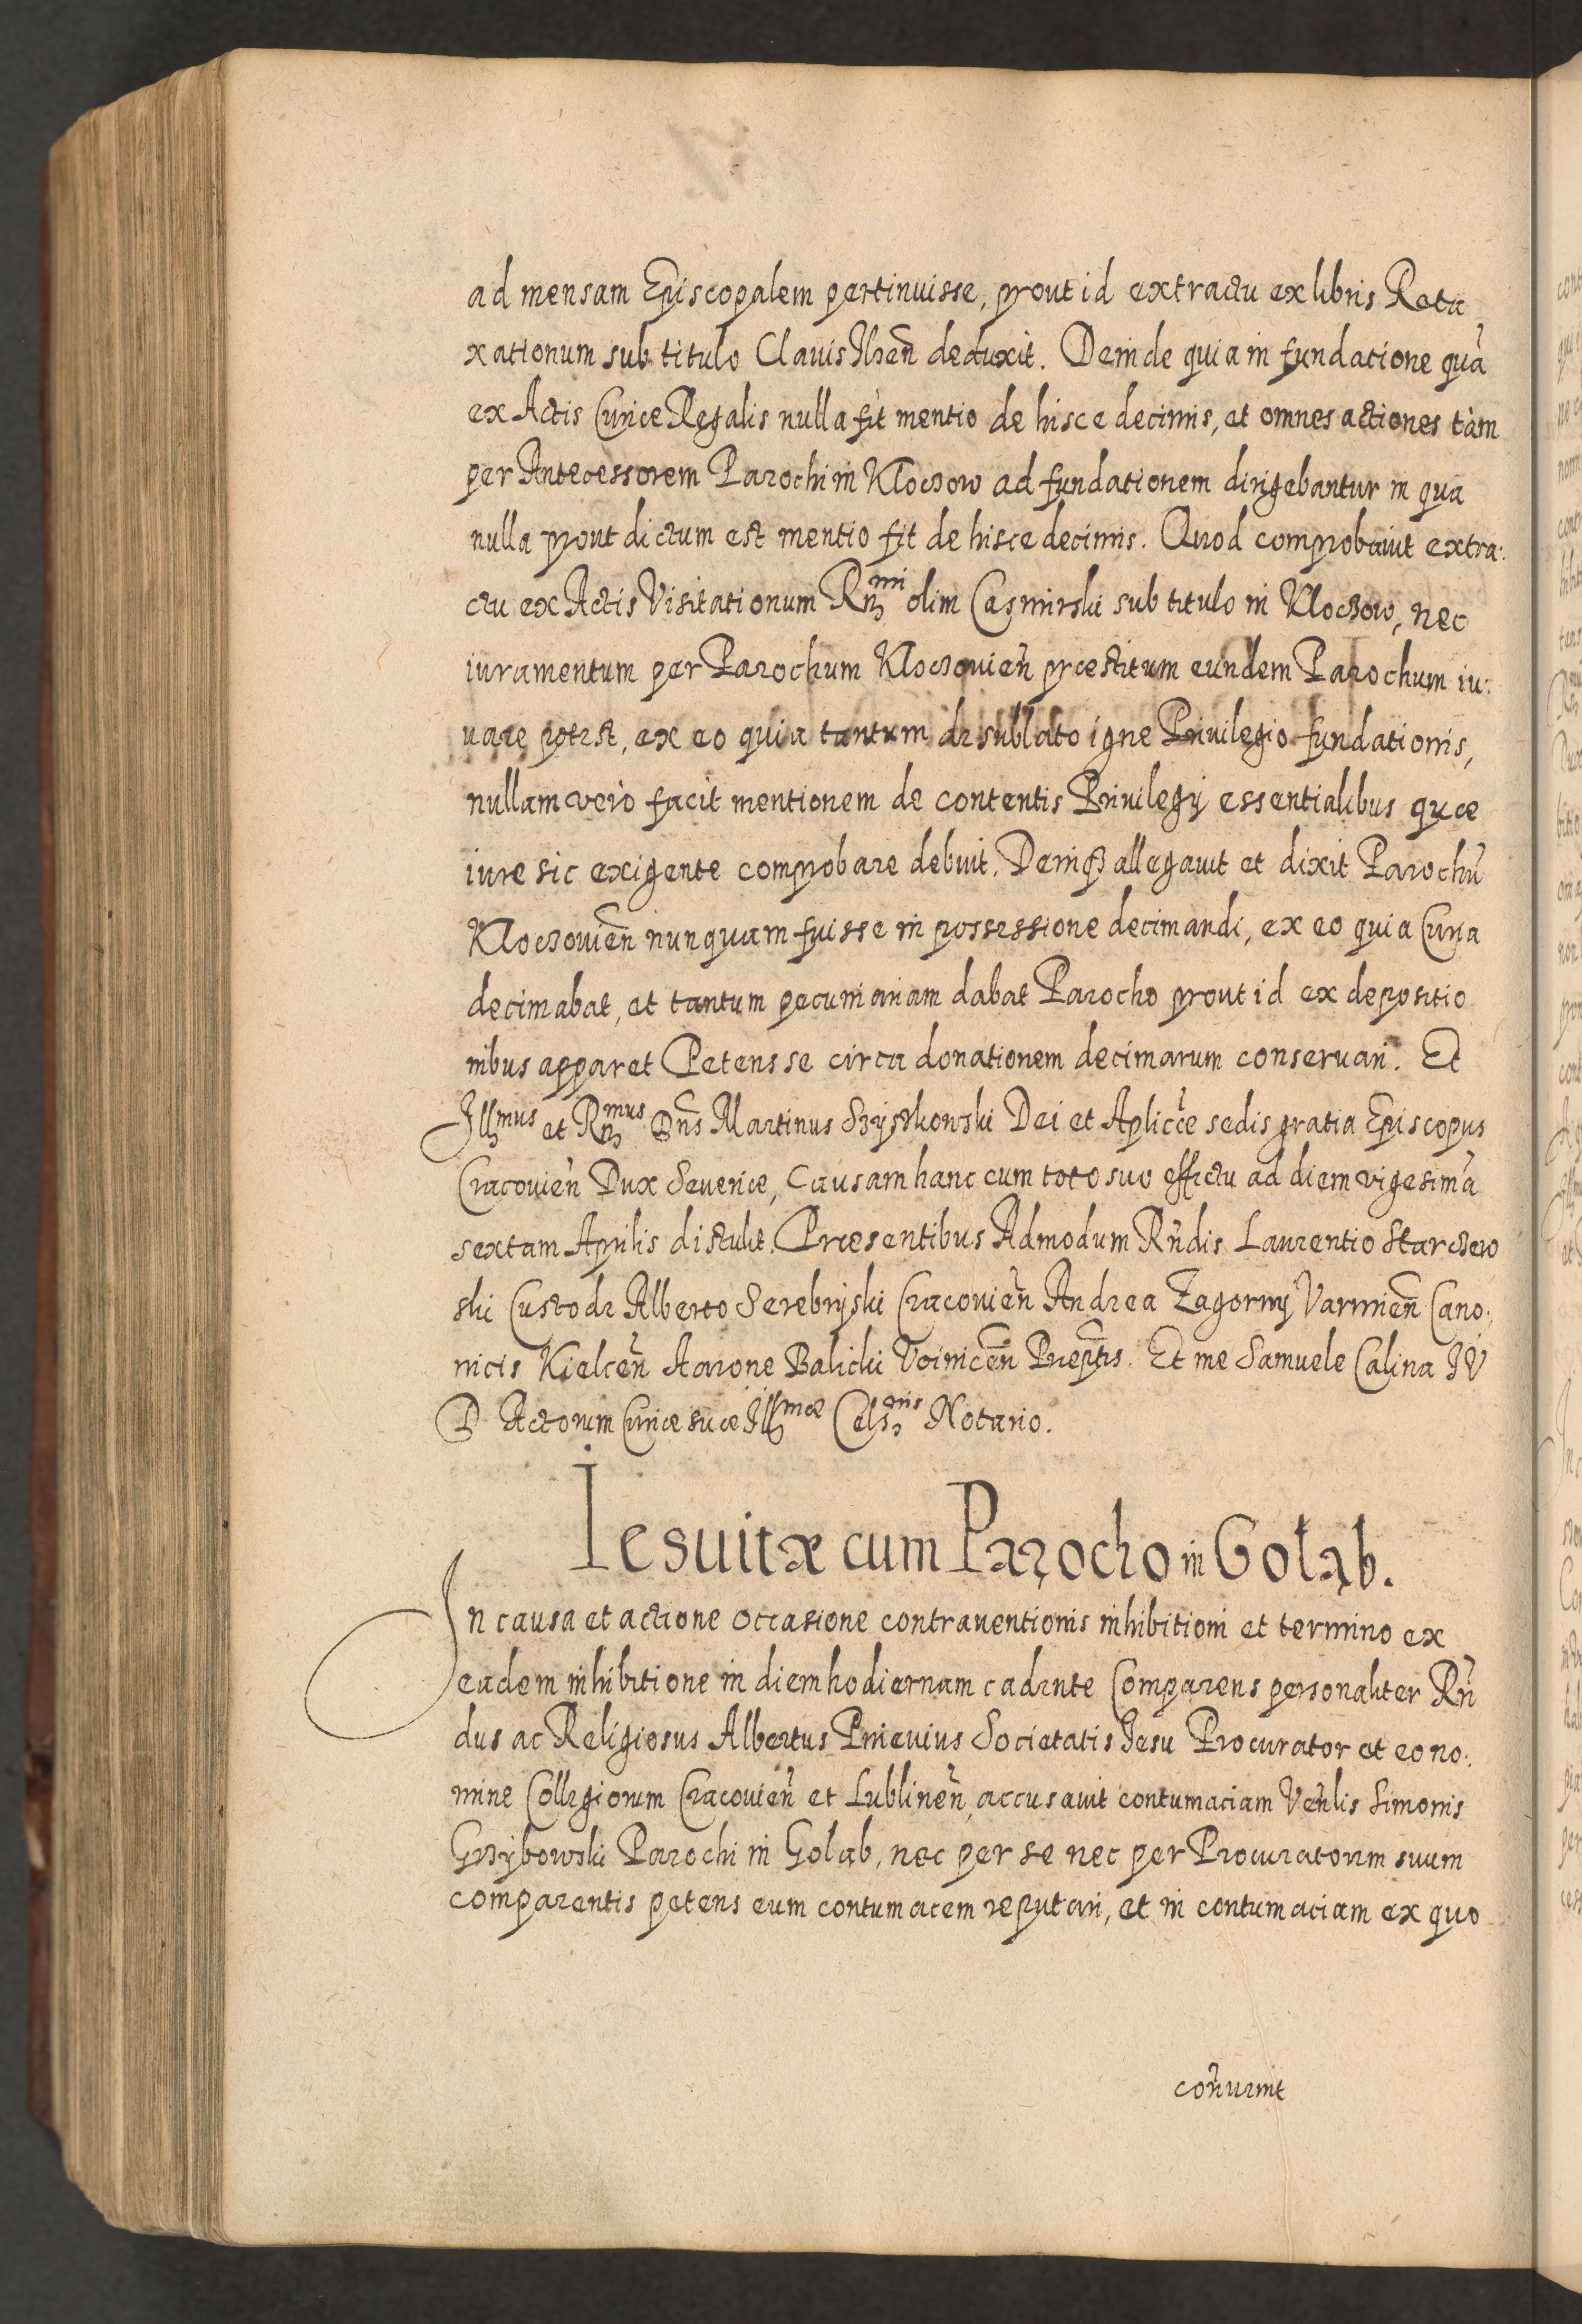 ad mensam Episcopalem pertinuisse, prout id extractu ex libris Reta
xationum sub titulo Clauis Ilzen̄ deduxit. Deinde quia in fundatione quā
ex Actis Curiæ Regalis nulla fit mentio de hisce decimis, et omnes actiones tàm
per Antecessorem Parochi in Kloczow ad fundationem dirigebantur in qua
nulla prout dictum est mentio fit de hisce decimis. Quod comprobauit extra:
ctu ex Actis Visitationum Rn̄mi olim Casmirski sub titulo in Kloczow, nec
iuramentum per Parochum Kloczouien̄ præstitum eundem Parochum iu:
uare potest, ex eo quia tantum de sublato igne Priuilegio fundationis,
nullam verò facit mentionem de contentis Priuilegij essentialibus quæ
iure sic exigente comprobare debuit. Deniqȝ allegauit et dixit Parochū
Kloczouien̄ nunquam fuisse in possessione decimandi, ex eo quia Curia
decimabat, et tantum pecuniariam dabat Parocho prout id ex depositio
nibus apparet Petens se circa donationem decimarum conseruari. Et
Illmus et Rn̄mus Dn̄s Martinus Szyszkowski Dei et Aplicæ sedis gratia Episcopus
Cracouien̄ Dux Seueriæ, Causam hanc cum toto suo effectu ad diem vigesimā
sextam Aprilis distulit. Præsentibus Admodum Rn̄dis Laurentio Starczew
ski Custode Alberto Serebryski Cracouien̄ Andrea Zagorny Varmien̄ Cano:
nicis Kielcen̄ Aarone Balicki Voinicen̄ Præptis. Et me Samuele Calina IV
D Actorum Curiæ suæ Illmæ Cels:nis Notario.
Iesuitæ cum Parocho in Gołąb.
In causa et actione occasione contrauentionis inhibitioni et termino ex
eadem inhibitione in diem hodiernam cadente Comparens personaliter Rn̄
dus ac Religiosus Albertus Pnieuius Societatis Jesu Procurator et eo no:
mine Collegiorum Cracouien̄ et Lublinen̄, accusauit contumaciam Ven̄lis Simonis
Grzybowski Parochi in Gołąb, nec per se nec per Procuratorem suum
comparentis petens eum contumacem reputari, et in contumaciam ex quo
con̄uenit